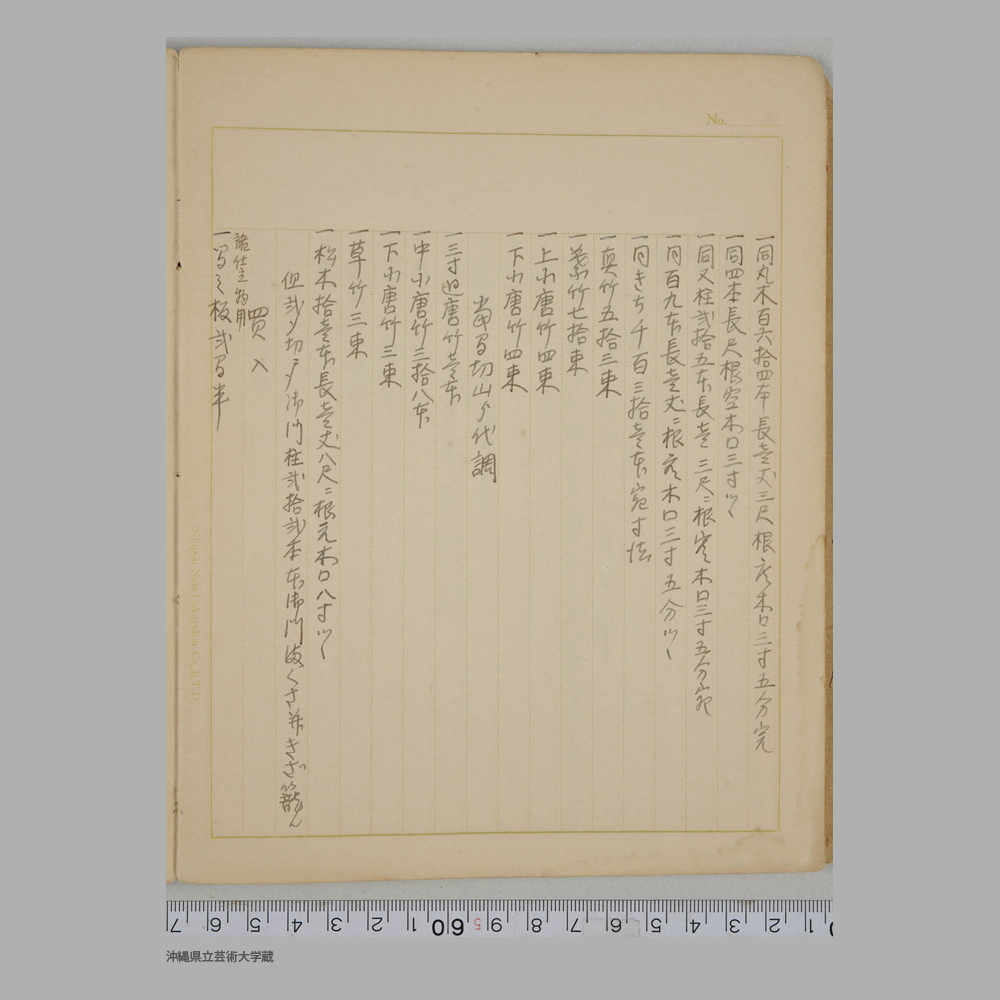 No.
一同丸木百六拾四本長壱丈三尺根廻木口三寸五分完
一同四本長尺根空木口三寸ツヽ
一同又柱弐拾五本長壱三尺ニ根完木口三寸五分宛
一同百九本長壱丈ニ根木口三寸五分ツヽ
一同きち千百三拾壱本宛寸法
一真竹五拾三束
一竹七拾束
一上小唐竹四束
一下小唐竹四束
当間切山ゟ代調
一三寸迴唐竹壱本
一中小唐竹三拾八本
一下小唐竹三束
一草竹三束
一松木拾壱本長壱丈八尺ニ根元木口八寸ツヽ
但弐ツ切ゟ御門柱弐拾弐本御門くさ并きざ
買入
誂仕立物
一板弐間半
Nippon Note Gakushu Co., LTD.
7 6 5 4 3 2 1 60 5 9 8 7 6 5 4 3 2 1
沖縄県立芸術大学蔵